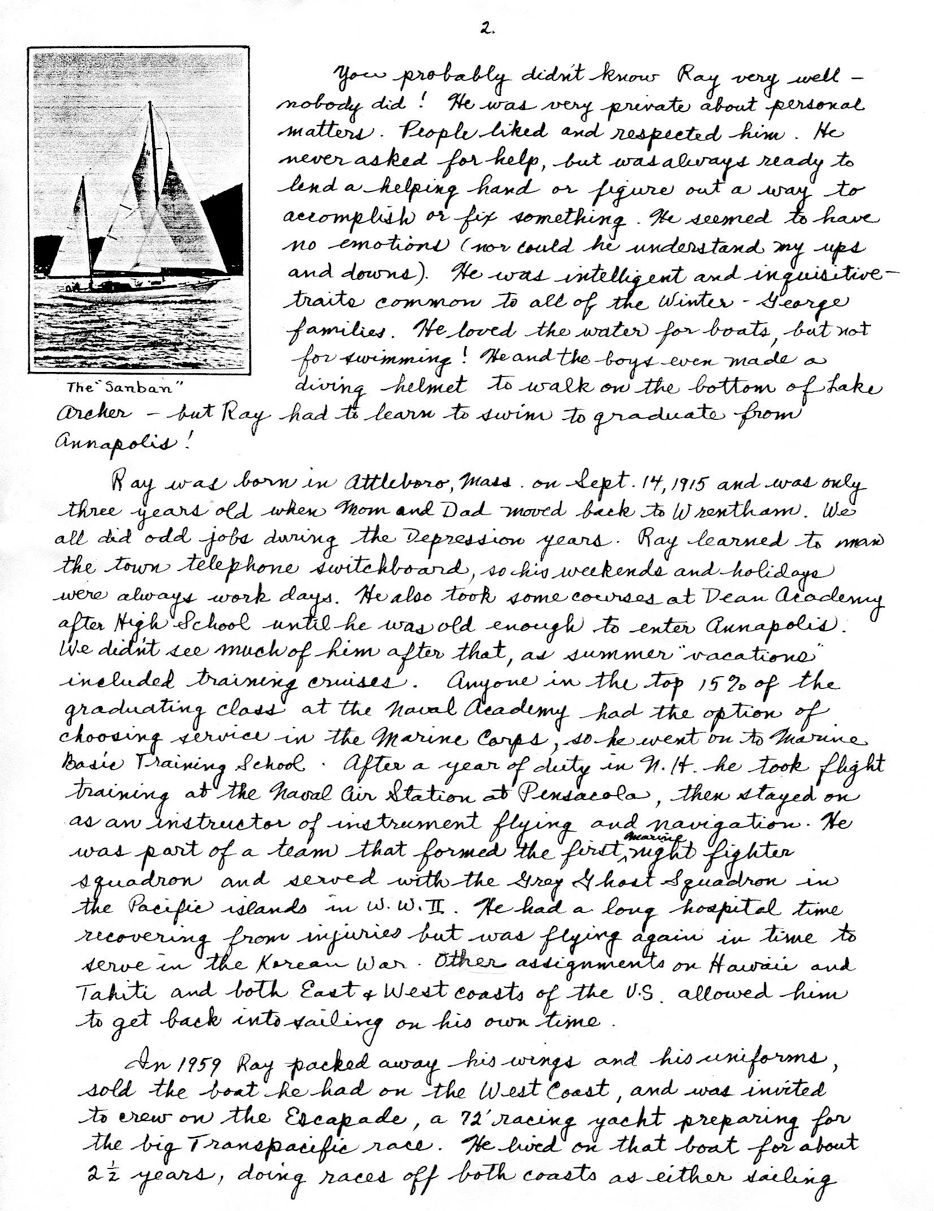 2.
You probably didn't know Ray very well –
nobody did! He was very private about personal
matters. People liked and respected him. He
never asked for help, but was always ready to
lend a helping hand or figure out a way to
accomplish or fix something. He seemed to have
no emotions (nor could he understand my ups
and downs). He was intelligent and inquisitive –
traits common to all of the Winter - George
families. He loved the water for boats, but not
for swimming! He and the boys even made a
The "Sanban"
diving helmet to walk on the bottom of Lake
Archer – but Ray had to learn to swim to graduate from
Annapolis!
Ray was born in Attleboro, Mass. on Sept. 14, 1915 and was only
three years old when Mom and Dad moved back to Wrentham. We
all did odd jobs during the Depression years. Ray learned to man
the town telephone switchboard, so his weekends and holidays
were always work days. He also took some courses at Dean Academy
after High School until he was old enough to enter Annapolis.
We didn't see much of him after that, as summer "vacations"
included training cruises. Anyone in the top 15% of the
graduating class at the Naval Academy had the option of
choosing service in the Marine Corps, so he went on to Marine
Basic Training School. After a year of duty in N.H. he took flight
training at the Naval Air Station at Pensacola, then stayed on
as an instructor of instrument flying and navigation. He
was part of a team that formed the first marine night fighter
squadron and served with the Grey Ghost Squadron in
the Pacific islands in W.W.II. He had a long hospital time
recovering from injuries but was flying again in time to
serve in the Korean War. Other assignments on Hawaii and
Tahiti and both East & West coasts of the U.S. allowed him
to get back into sailing on his own time.
In 1959 Ray packed away his wings and his uniforms,
sold the boat he had on the West Coast, and was invited
to crew on the Escapade, a 72' racing yacht preparing for
the big Transpacific race. He lived on that boat for about
2½ years, doing races off both coasts as either sailing